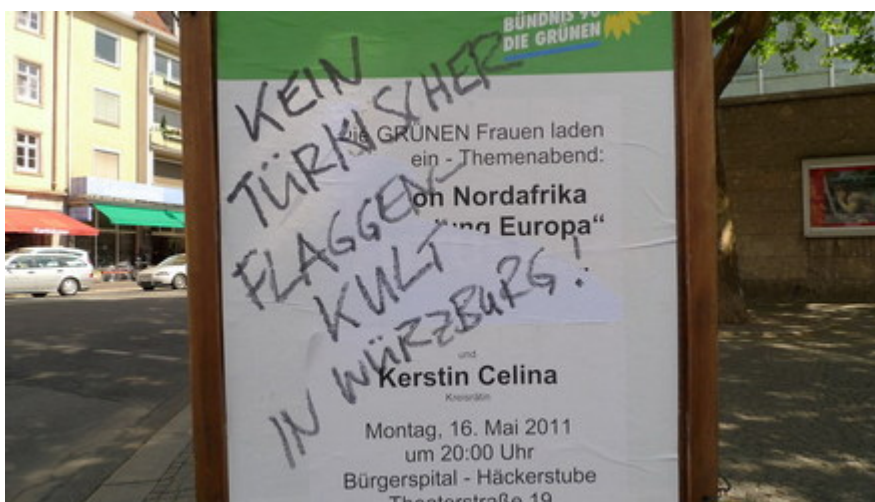 BÜNDNIS 90
DIE GRÜNEN
KEIN
TÜRKISCHER
FLAGGEN-
KULT
IN WÜRZBURG!
Die GRÜNEN Frauen laden
ein - Themenabend:
on Nordafrika
ung Europa“
und
Kerstin Celina
Kreisrätin
Montag, 16. Mai 2011
um 20:00 Uhr
Bürgerspital - Häckerstube
Theaterstraße 19